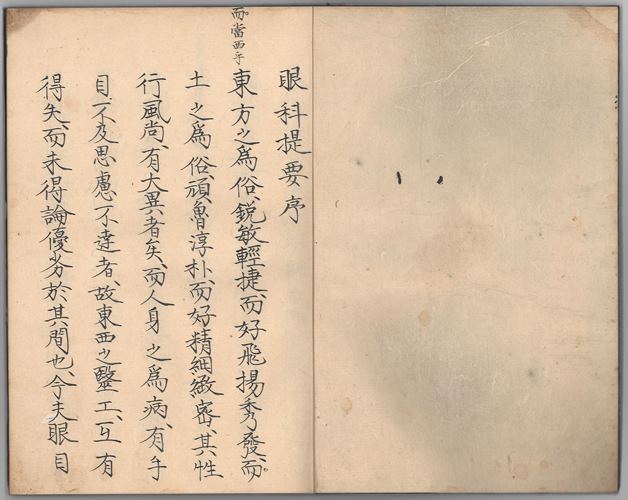 眼科提要序
而當西乎
東方之爲俗、銳敏輕捷、而好飛揚秀發、而。
土之爲俗、頑魯淳朴、而好精細緻密、其性
行風尚、有大異者矣、而人身之爲病、有手
目不及思慮不達者、故東西之醫工、互有
得失、而未得論優劣於其間也、今夫眼目